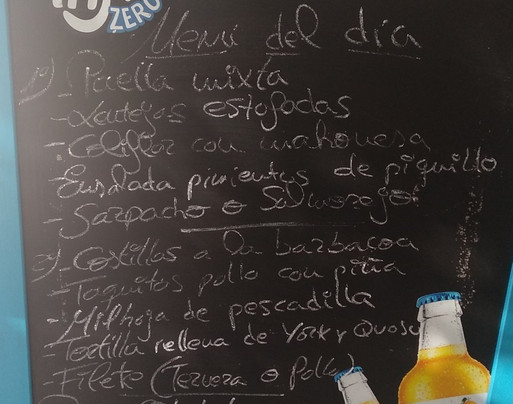 ZERO
Menú del día
1)-Paella mixta
-Lentejas estofadas
-Coliflor con mahonesa
-Ensalada pimientos de piquillo
-Gazpacho o Salmorejo
2)-Costillas a la barbacoa
-Taquitos pollo con piña
-Milhoja de pescadilla
-Tortilla rellena de York y Queso
-Filete (Ternera o Pollo)